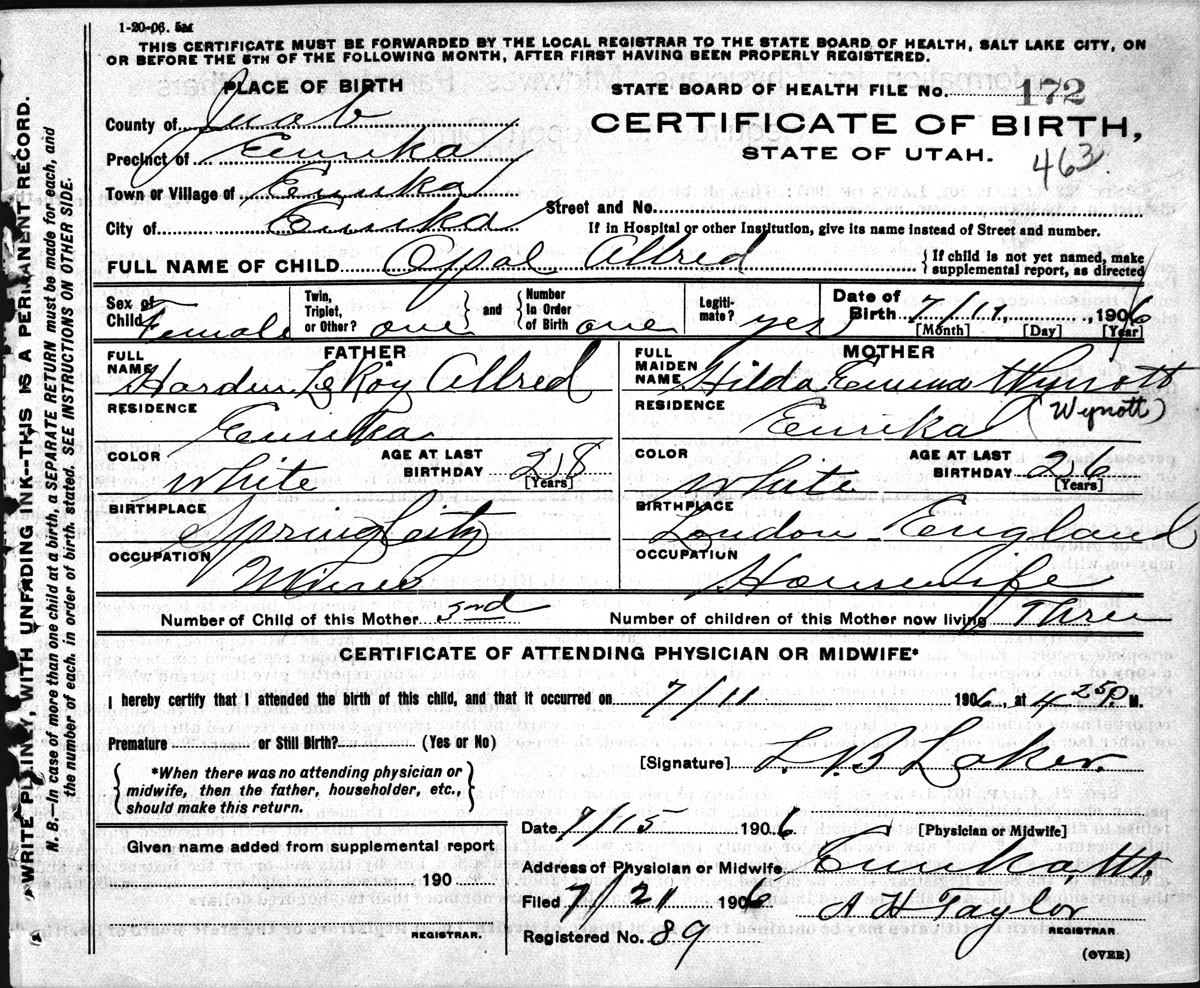 1-20-06. 5M
THIS CERTIFICATE MUST BE FORWARDED BY THE LOCAL REGISTRAR TO THE STATE BOARD OF HEALTH, SALT LAKE CITY, ON
OR BEFORE THE 5TH OF THE FOLLOWING MONTH, AFTER FIRST HAVING BEEN PROPERLY REGISTERED.
PLACE OF BIRTH
STATE BOARD OF HEALTH FILE No. 172
County of Juab
CERTIFICATE OF BIRTH,
STATE OF UTAH.
463
Precinct of Eureka
Town or Village of Eureka
Street and No.
City of Eureka
If in Hospital or other Institution, give its name instead of Street and number.
FULL NAME OF CHILD Opal Allred
{If child is not yet named, make
supplemental report, as directed
Sex of Child Female
Twin, Triplet, or Other? one
and
Number In Order of Birth one
Legitimate? yes
Date of Birth 7/11, 1906
[Month] [Day] [Year]
FATHER
FULL NAME Harden LeRoy Allred
RESIDENCE
Eureka
COLOR
White
AGE AT LAST BIRTHDAY 28
[Years]
BIRTHPLACE
Spring City
OCCUPATION
Miner
MOTHER
FULL MAIDEN NAME Hilda Emma Wynott
(Wynott)
RESIDENCE
Eureka
COLOR
White
AGE AT LAST BIRTHDAY 26
[Years]
BIRTHPLACE
London England
OCCUPATION
Housewife
Number of Child of this Mother 3rd
Number of children of this Mother now living Three
CERTIFICATE OF ATTENDING PHYSICIAN OR MIDWIFE*
I hereby certify that I attended the birth of this child, and that it occurred on 7/11 1906, at 4 25 P. M.
Premature or Still Birth? (Yes or No)
[Signature] L. B. Laker.
*When there was no attending physician or
midwife, then the father, householder, etc.,
should make this return.
Date 7/15 1906
[Physician or Midwife]
Given name added from supplemental report
190
REGISTRAR.
Address of Physician or Midwife Eureka, Ut.
Filed 7/21 1906
A H Taylor
REGISTRAR
Registered No. 89
(OVER)
WRITE PLAINLY, WITH UNFADING INK--THIS IS A PERMANENT RECORD.
N. B.—In case of more than one child at a birth, a SEPARATE RETURN must be made for each, and
the number of each, in order of birth, stated. SEE INSTRUCTIONS ON OTHER SIDE.